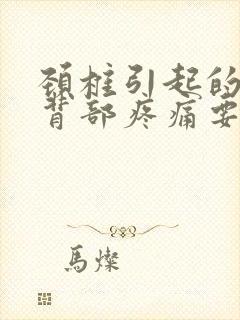 颈柱引起的
背部疼痛要
馬燦